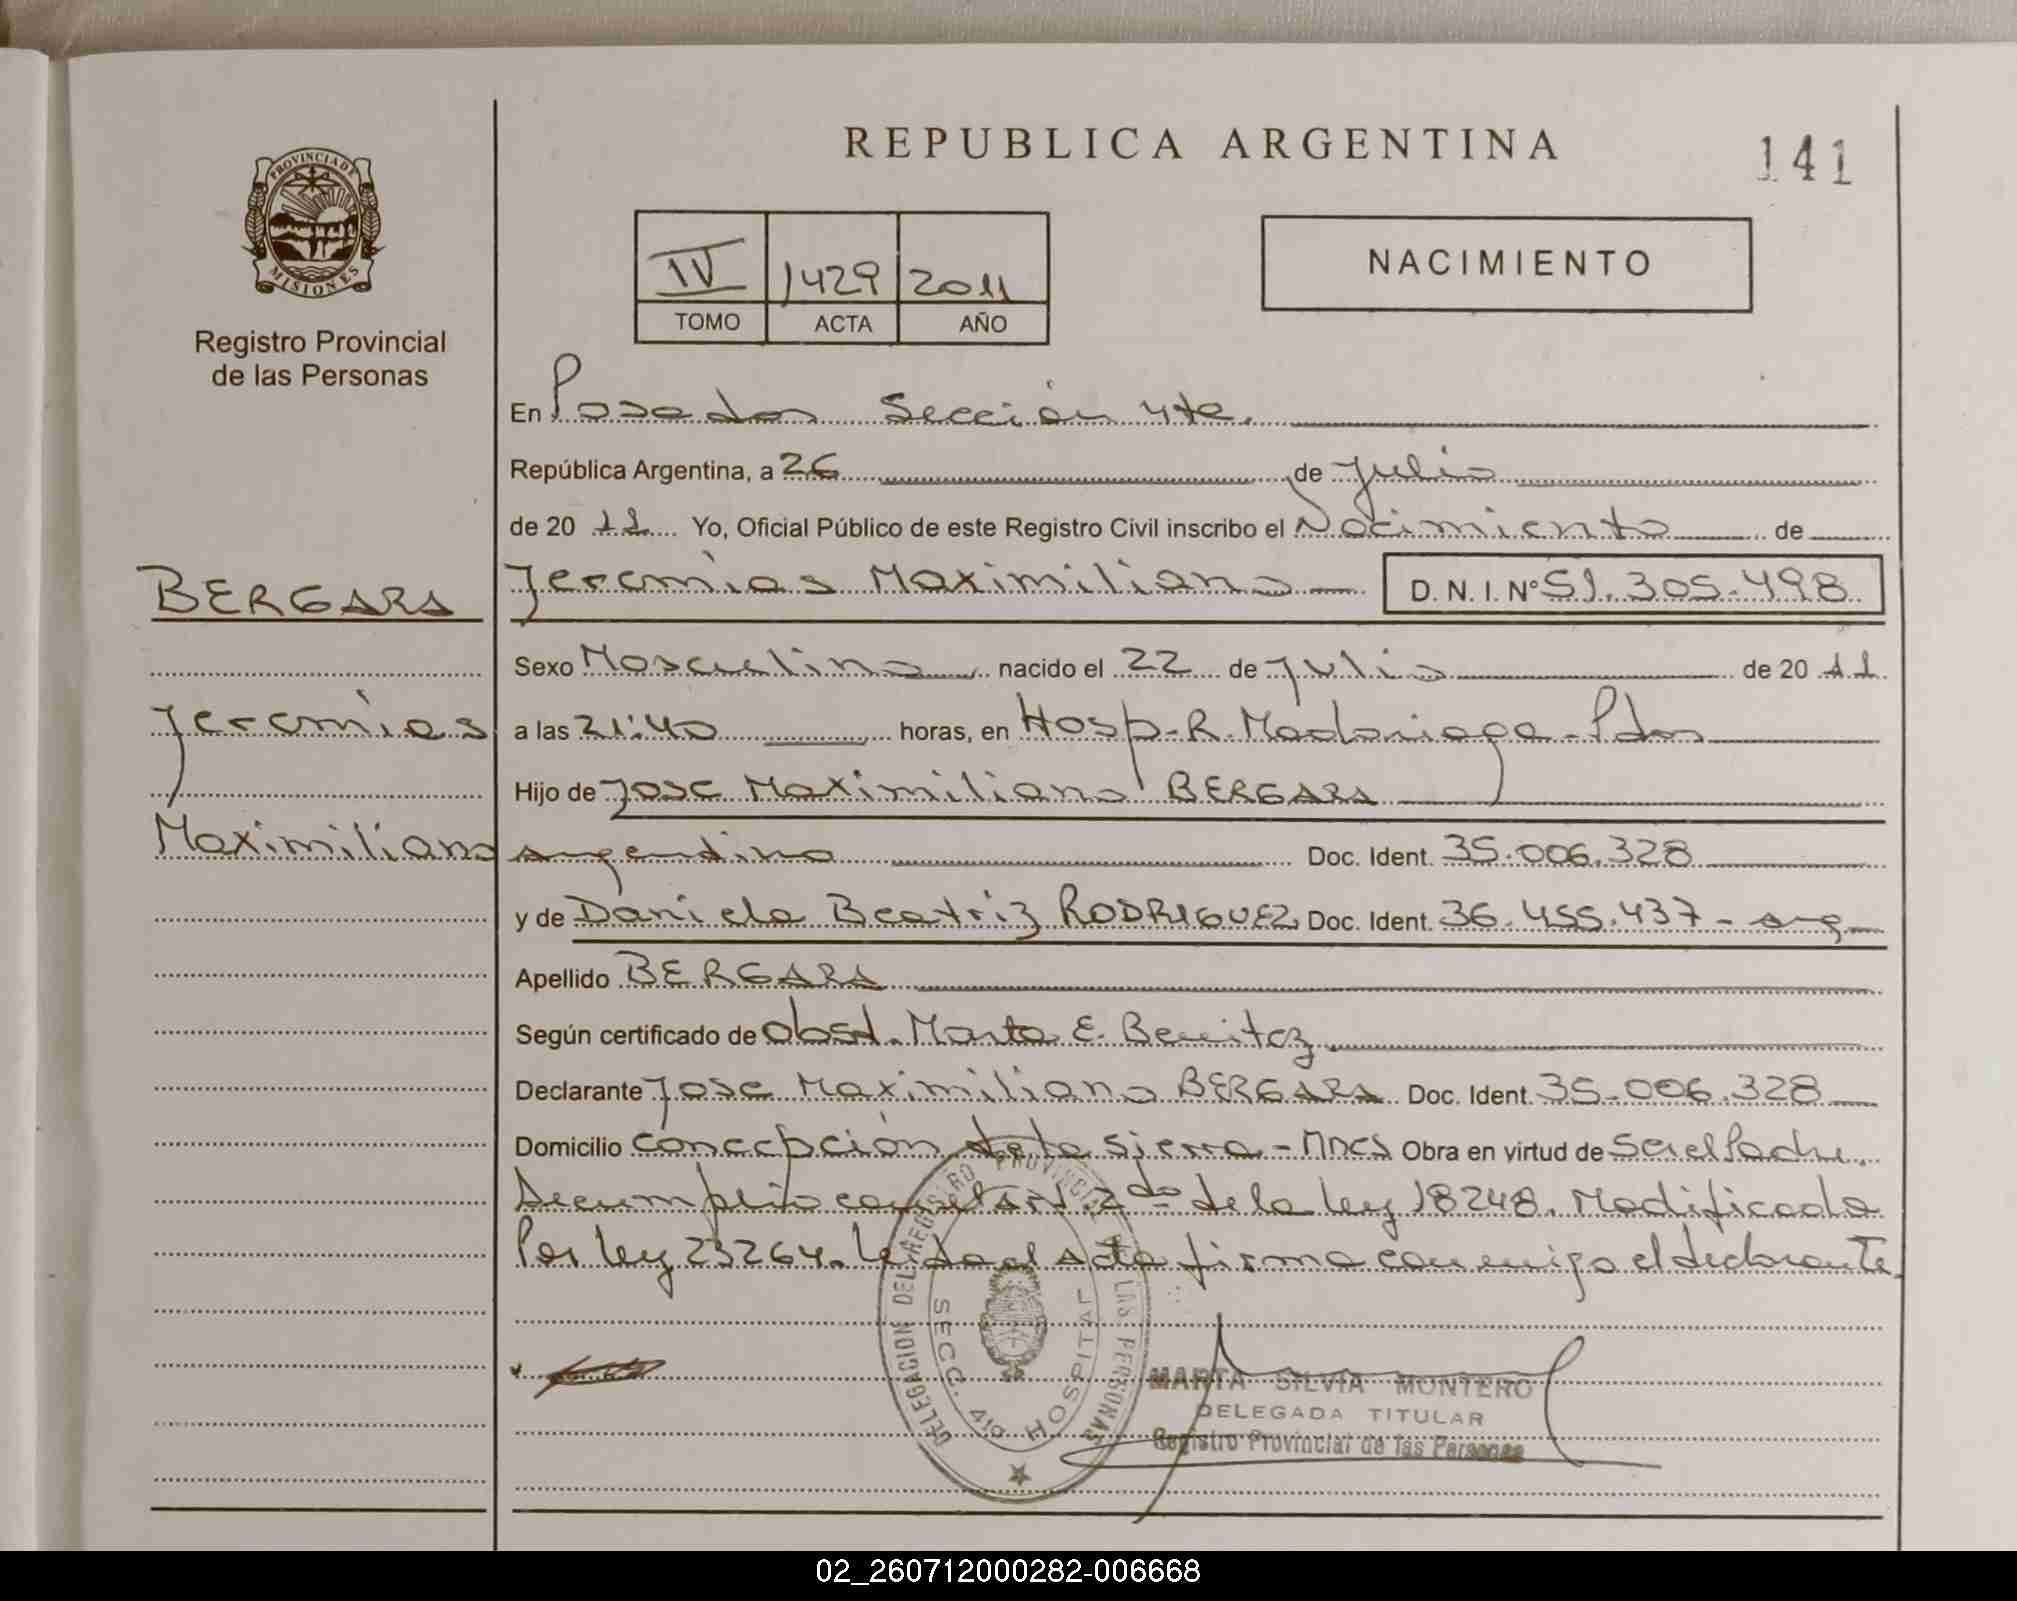 REPUBLICA ARGENTINA
141
PROVINCIA DE
MISIONES
Registro Provincial
de las Personas
IV 1429 2011
TOMO ACTA AÑO
NACIMIENTO
En Posadas Sección 4ta.
República Argentina, a 26 de Julio
de 20 11 Yo, Oficial Público de este Registro Civil inscribo el Nacimiento de
BERGARA
Jeremías Maximiliano D. N. I. Nº 51.305.498
Sexo Masculino nacido el 22 de Julio de 20 11
Jeremías
a las 21:40 horas, en Hosp. R. Madariaga - Pdas
Hijo de Jose Maximiliano BERGARA
Maximiliano
argentino Doc. Ident. 35.006.328
y de Daniela Beatriz RODRIGUEZ Doc. Ident. 36.455.437 - arg
Apellido BERGARA
Según certificado de obst. Marta E. Benitez
Declarante Jose Maximiliano BERGARA Doc. Ident. 35.006.328
Domicilio Concepción de la Sierra - Mnes Obra en virtud de Ser el Padre.
Se cumplió con el art. 2do de la ley 18248. Modificada
Por ley 23264. Leída el acta firma conmigo el declarante
DELEGACION DEL REGISTRO PROVINCIAL DE LAS PERSONAS
SECC. 4ta HOSPITAL
MARTA SILVIA MONTERO
DELEGADA TITULAR
Registro Provincial de las Personas
02_260712000282-006668